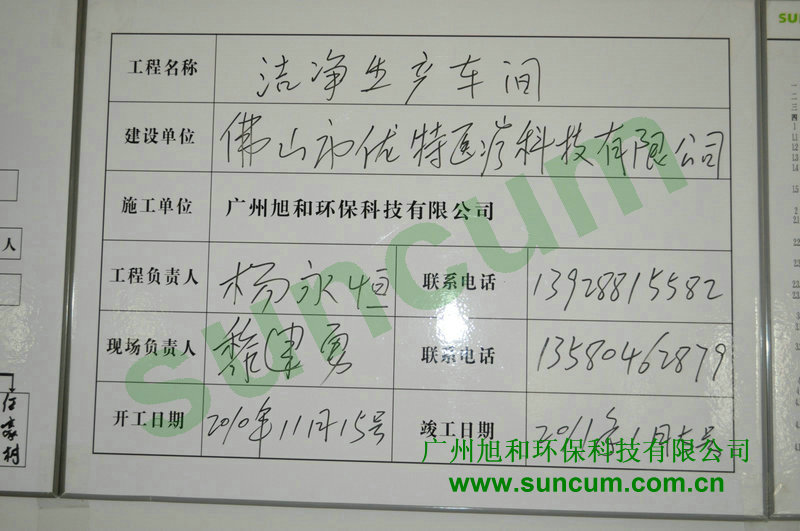 工程名称 洁净生产车间
建设单位 佛山市优特医疗科技有限公司
施工单位 广州旭和环保科技有限公司
工程负责人 杨永恒 联系电话 13928815582
现场负责人 黎建勇 联系电话 13580462879
开工日期 2010年11月15号 竣工日期 2011年1月5号
suncum
广州旭和环保科技有限公司
www.suncum.com.cn
人